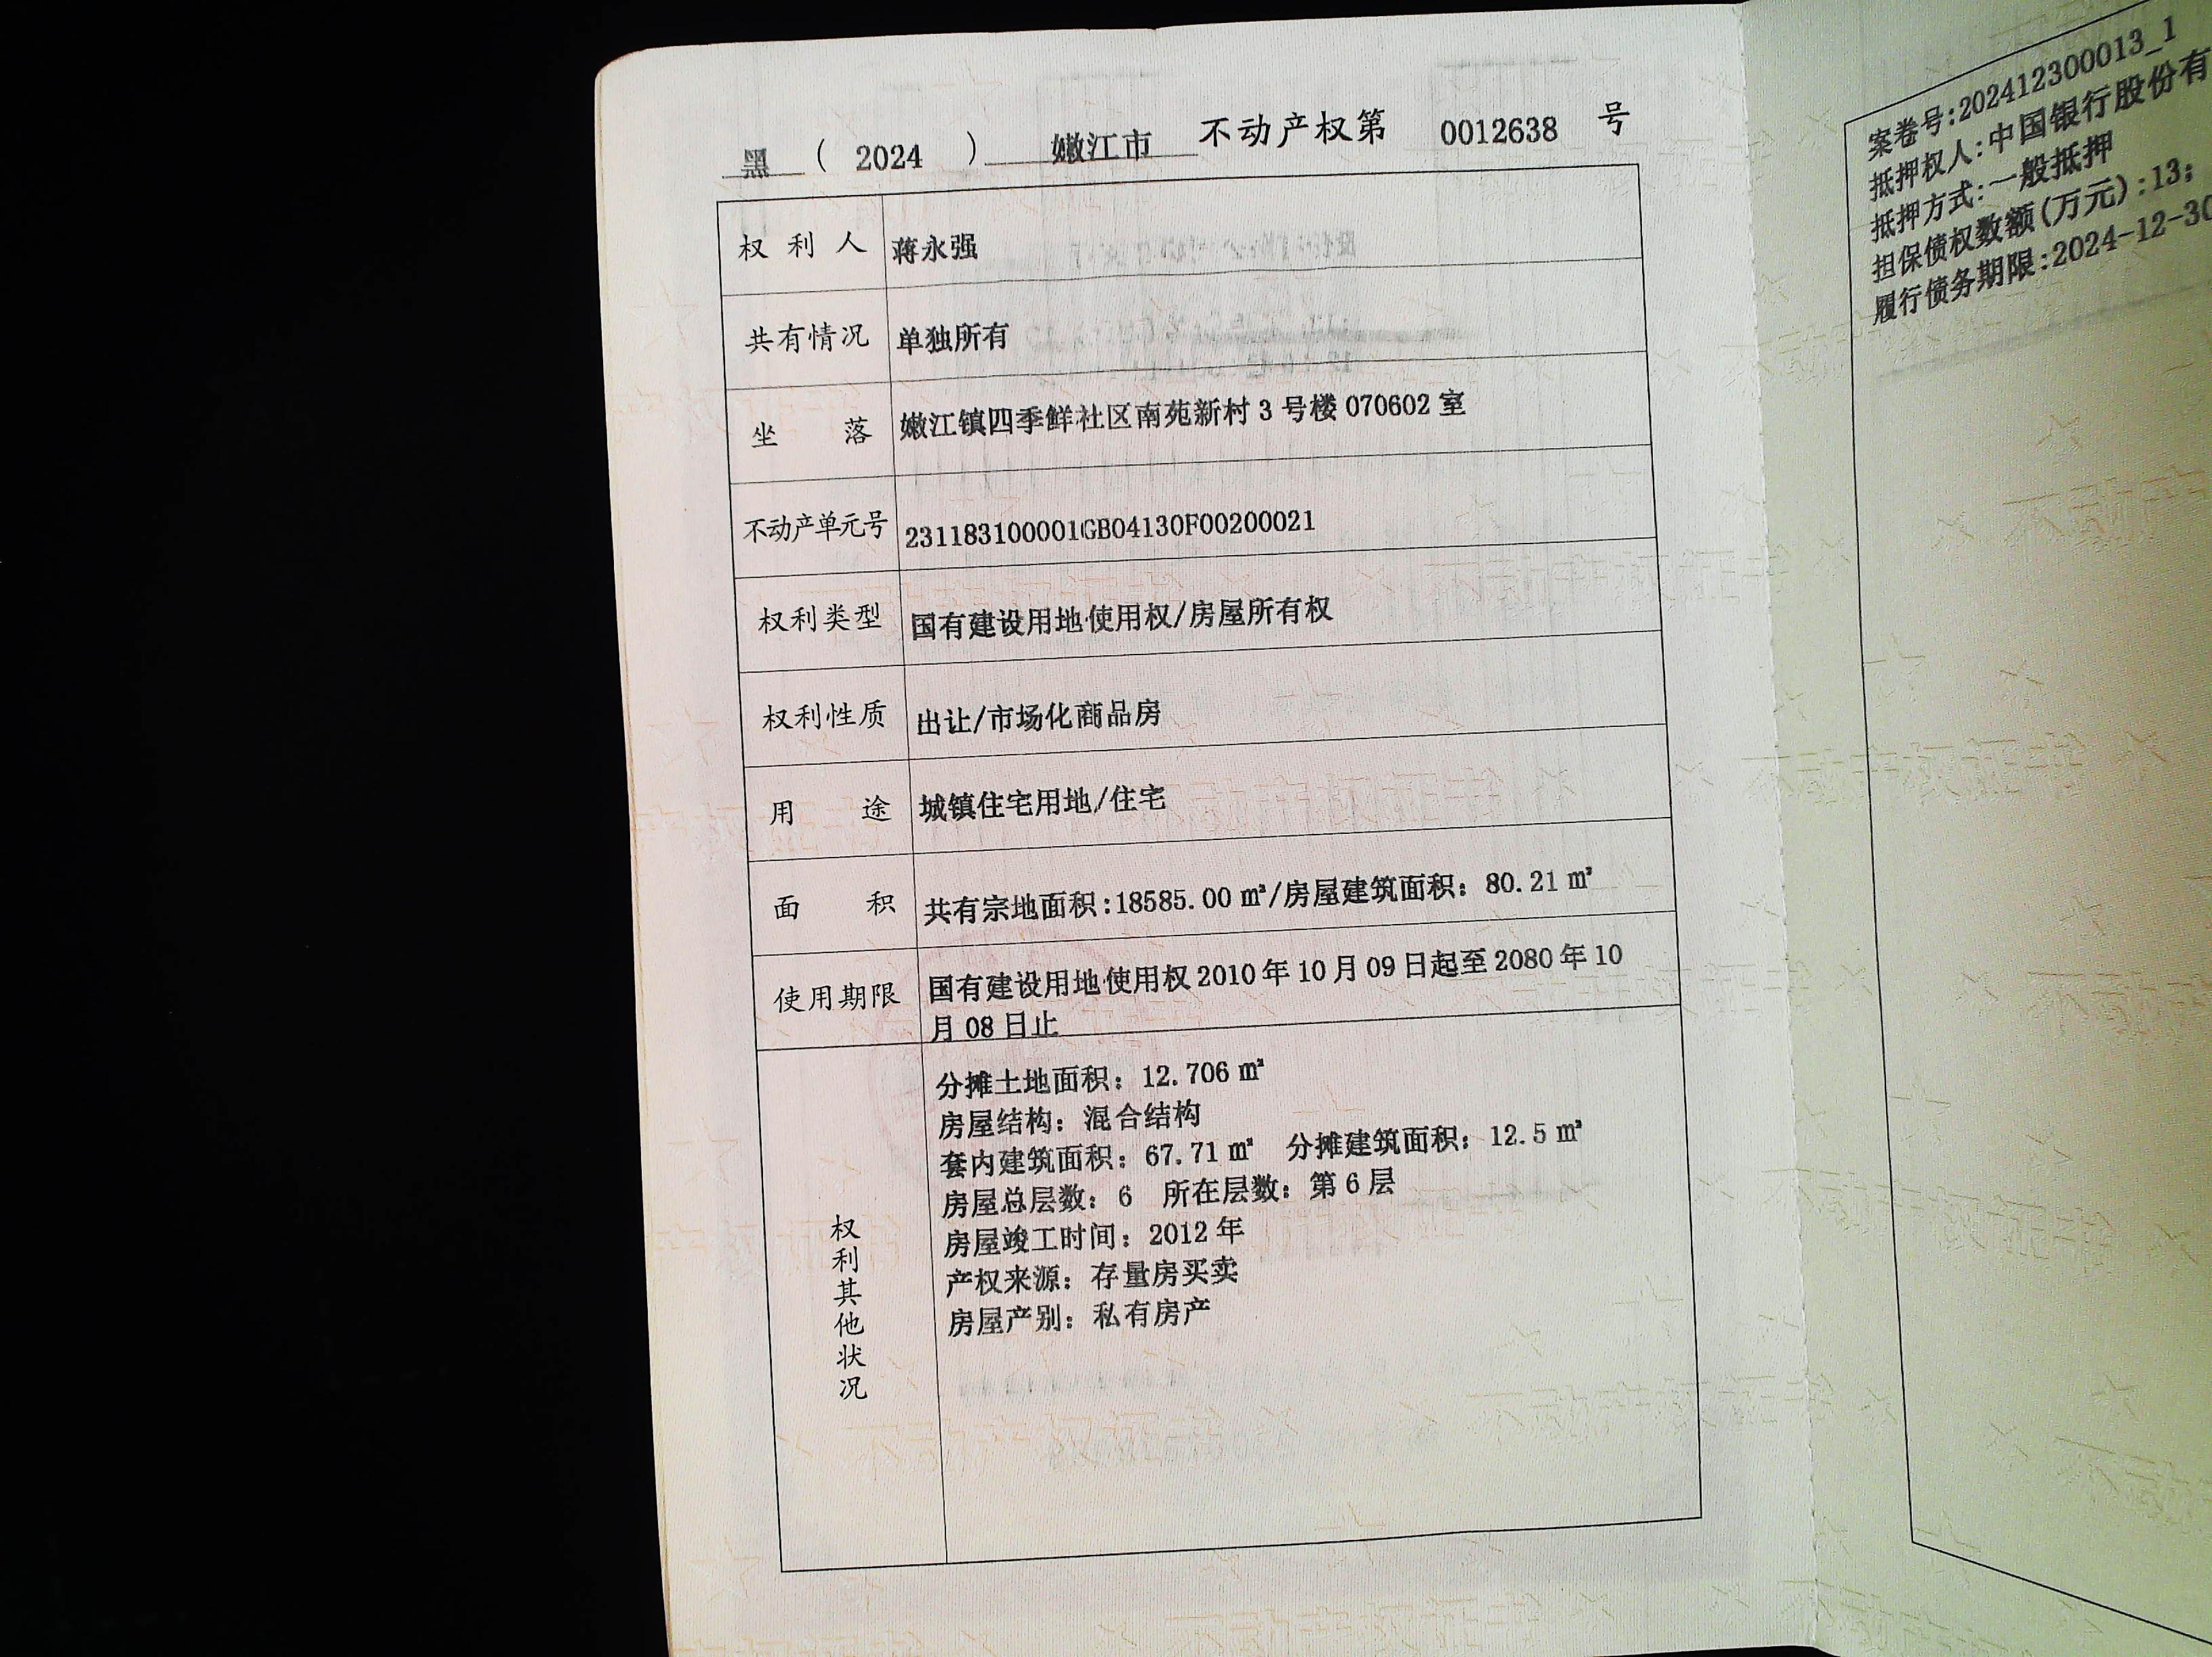 黑（2024）嫩江市 不动产权第 0012638 号
权利人 蒋永强
共有情况 单独所有
坐落 嫩江镇四季鲜社区南苑新村 3 号楼 070602 室
不动产单元号 231183100001GB04130F00200021
权利类型 国有建设用地使用权/房屋所有权
权利性质 出让/市场化商品房
用途 城镇住宅用地/住宅
面积 共有宗地面积:18585.00 ㎡/房屋建筑面积：80.21 ㎡
使用期限 国有建设用地使用权 2010 年 10 月 09 日起至 2080 年 10
月 08 日止
权利其他状况
分摊土地面积：12.706 ㎡
房屋结构：混合结构
套内建筑面积：67.71 ㎡ 分摊建筑面积：12.5 ㎡
房屋总层数：6 所在层数：第 6 层
房屋竣工时间：2012 年
产权来源：存量房买卖
房屋产别：私有房产
案卷号:202412300013_1
抵押权人:中国银行股份有
抵押方式:一般抵押
担保债权数额(万元):13;
履行债务期限:2024-12-30